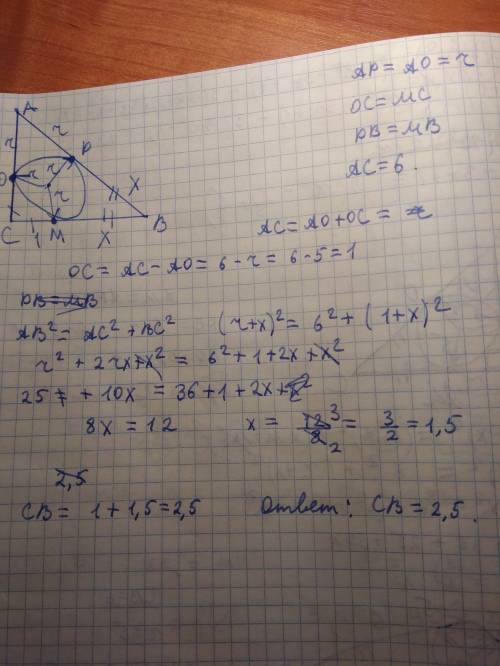 A
r
r
P
AP = AO = r
OC = MC
PB = MB
AC = 6.
O
r
r
r
X
C
1
M
X
B
AC = AO + OC =
OC = AC - AO = 6 - r = 6 - 5 = 1
PB = MB
AB² = AC² + BC²    (r+x)² = 6² + (1+x)²
r² + 2rx + x² = 6² + 1 + 2x + x²
25 + 10x = 36 + 1 + 2x + x²
8x = 12    x = 12/8 3 2 = 3/2 = 1,5
2,5
CB = 1 + 1,5 = 2,5    Ответ: CB = 2,5.